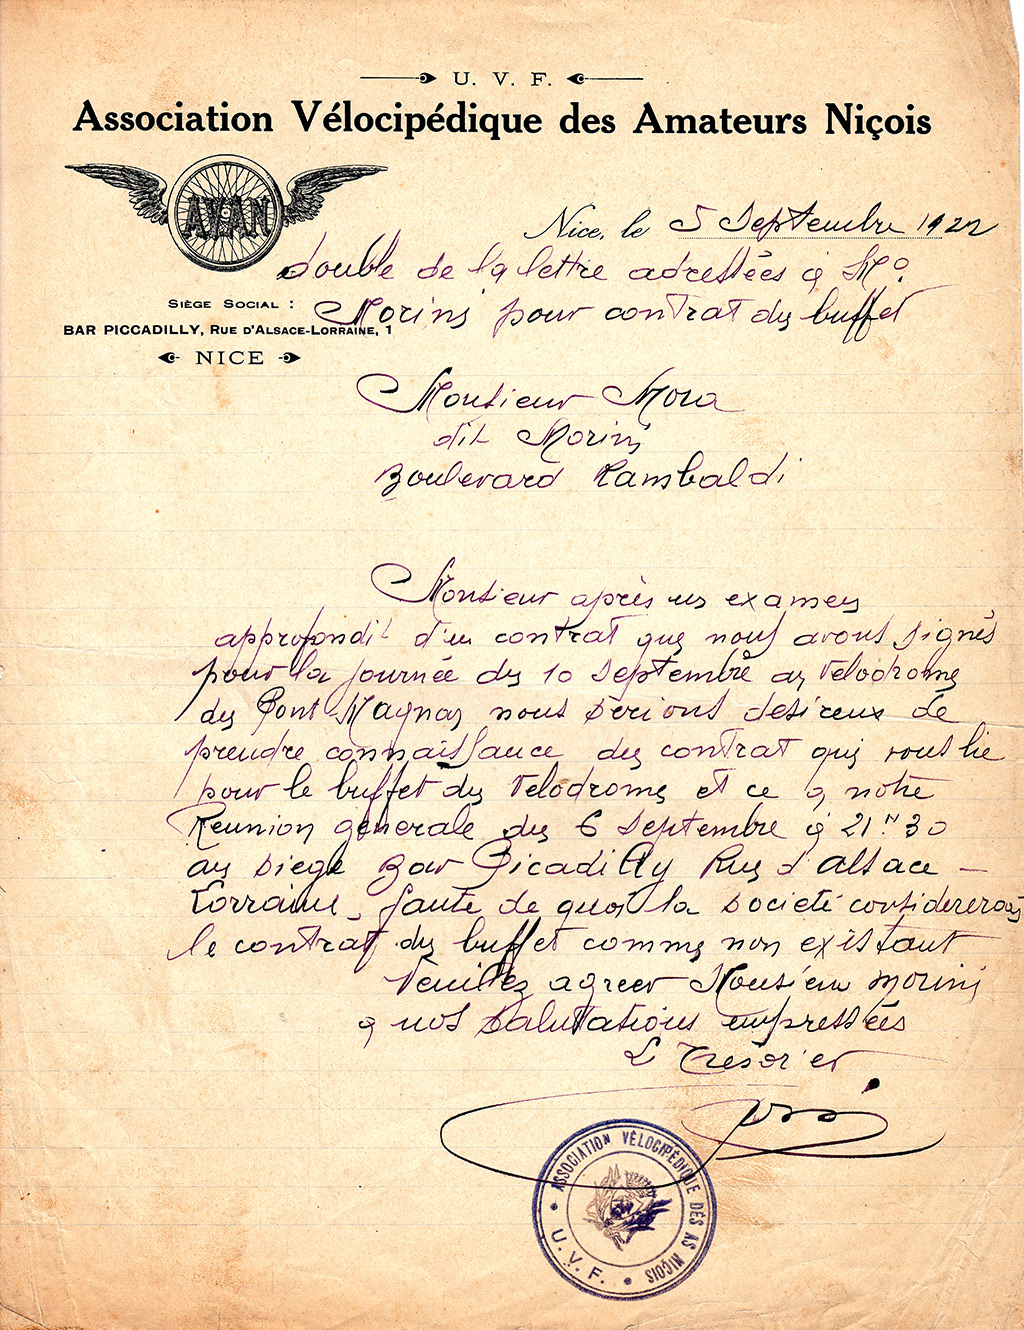 U. V. F.
Association Vélocipédique des Amateurs Niçois
AVAN
Nice, le 5 Septembre 1922
double de la lettre adressées à Mo.
SIÈGE SOCIAL :
Morini pour contrat du buffet
BAR PICCADILLY, RUE D'ALSACE-LORRAINE, 1
NICE
Monsieur Mora
dit Morini
Boulevard Rambaldi
Monsieur après un examen
approfondit d'un contrat que nous avons signés
pour la journée du 10 Septembre au Velodrome
du Pont Magnan nous serions desireux de
prendre connaissance du contrat qui vous lie
pour le buffet du Velodrome et ce a notre
Reunion generale du 6 Septembre à 21 H 30
au siege Bar Picadilly Rue d'Alsace -
Lorraine, faute de quoi la societé considererais
le contrat du buffet comme non existant
Veuillez agreer Monsieur Morini
a nos salutations empressées
L Tresorier
ASSOCIATION VÉLOCIPÉDIQUE DES AS NIÇOIS
U. V. F.